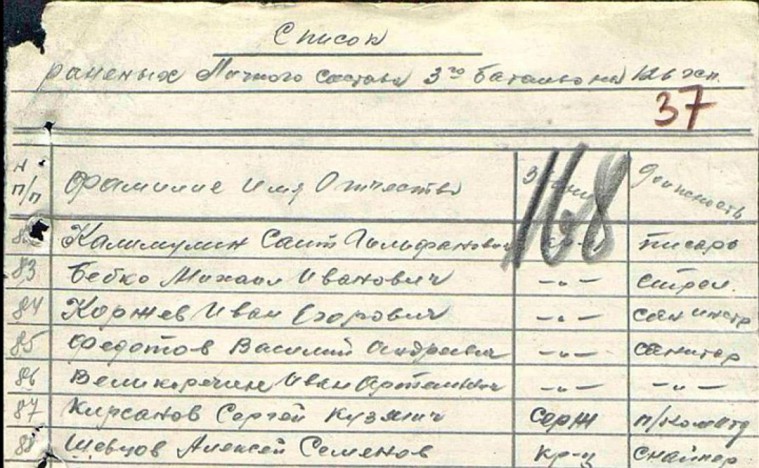 Список
раненых Личного состава 3го батальона
37
N п/п Фамилие Имя Отчество Звание Должность
168
Калимулин Саит писарь
83 Бебко Михаил Иванович -"- стрел.
84 Коржев Иван Егорович -"- сан инстр
85 Федотов Василий Андреевич -"- санитар
86 Великоречин Иван -"- -"-
87 Кирсанов Сергей Кузьмич серж п/ком отд
88 Шевцов Алексей Семенов кр-ц снайпер